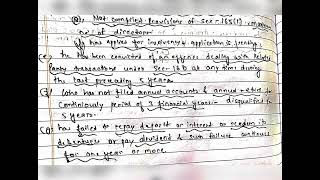 (d) Not complied provisions of sec-165(1) - maximum
no. of directors
S/he has applied for insolvency & application is pending
(e) he has been convicted of an offence dealing with Related
Party transactions under sec-188 at any time during
the last preceding 5 years.
(f) Who has not filed annual accounts & annual return
continuously period of 3 financial years - disqualified for
5 years.
(g) has failed to repay deposit or interest or redeem its
debentures or pay dividend & such failure continues
for one year or more.